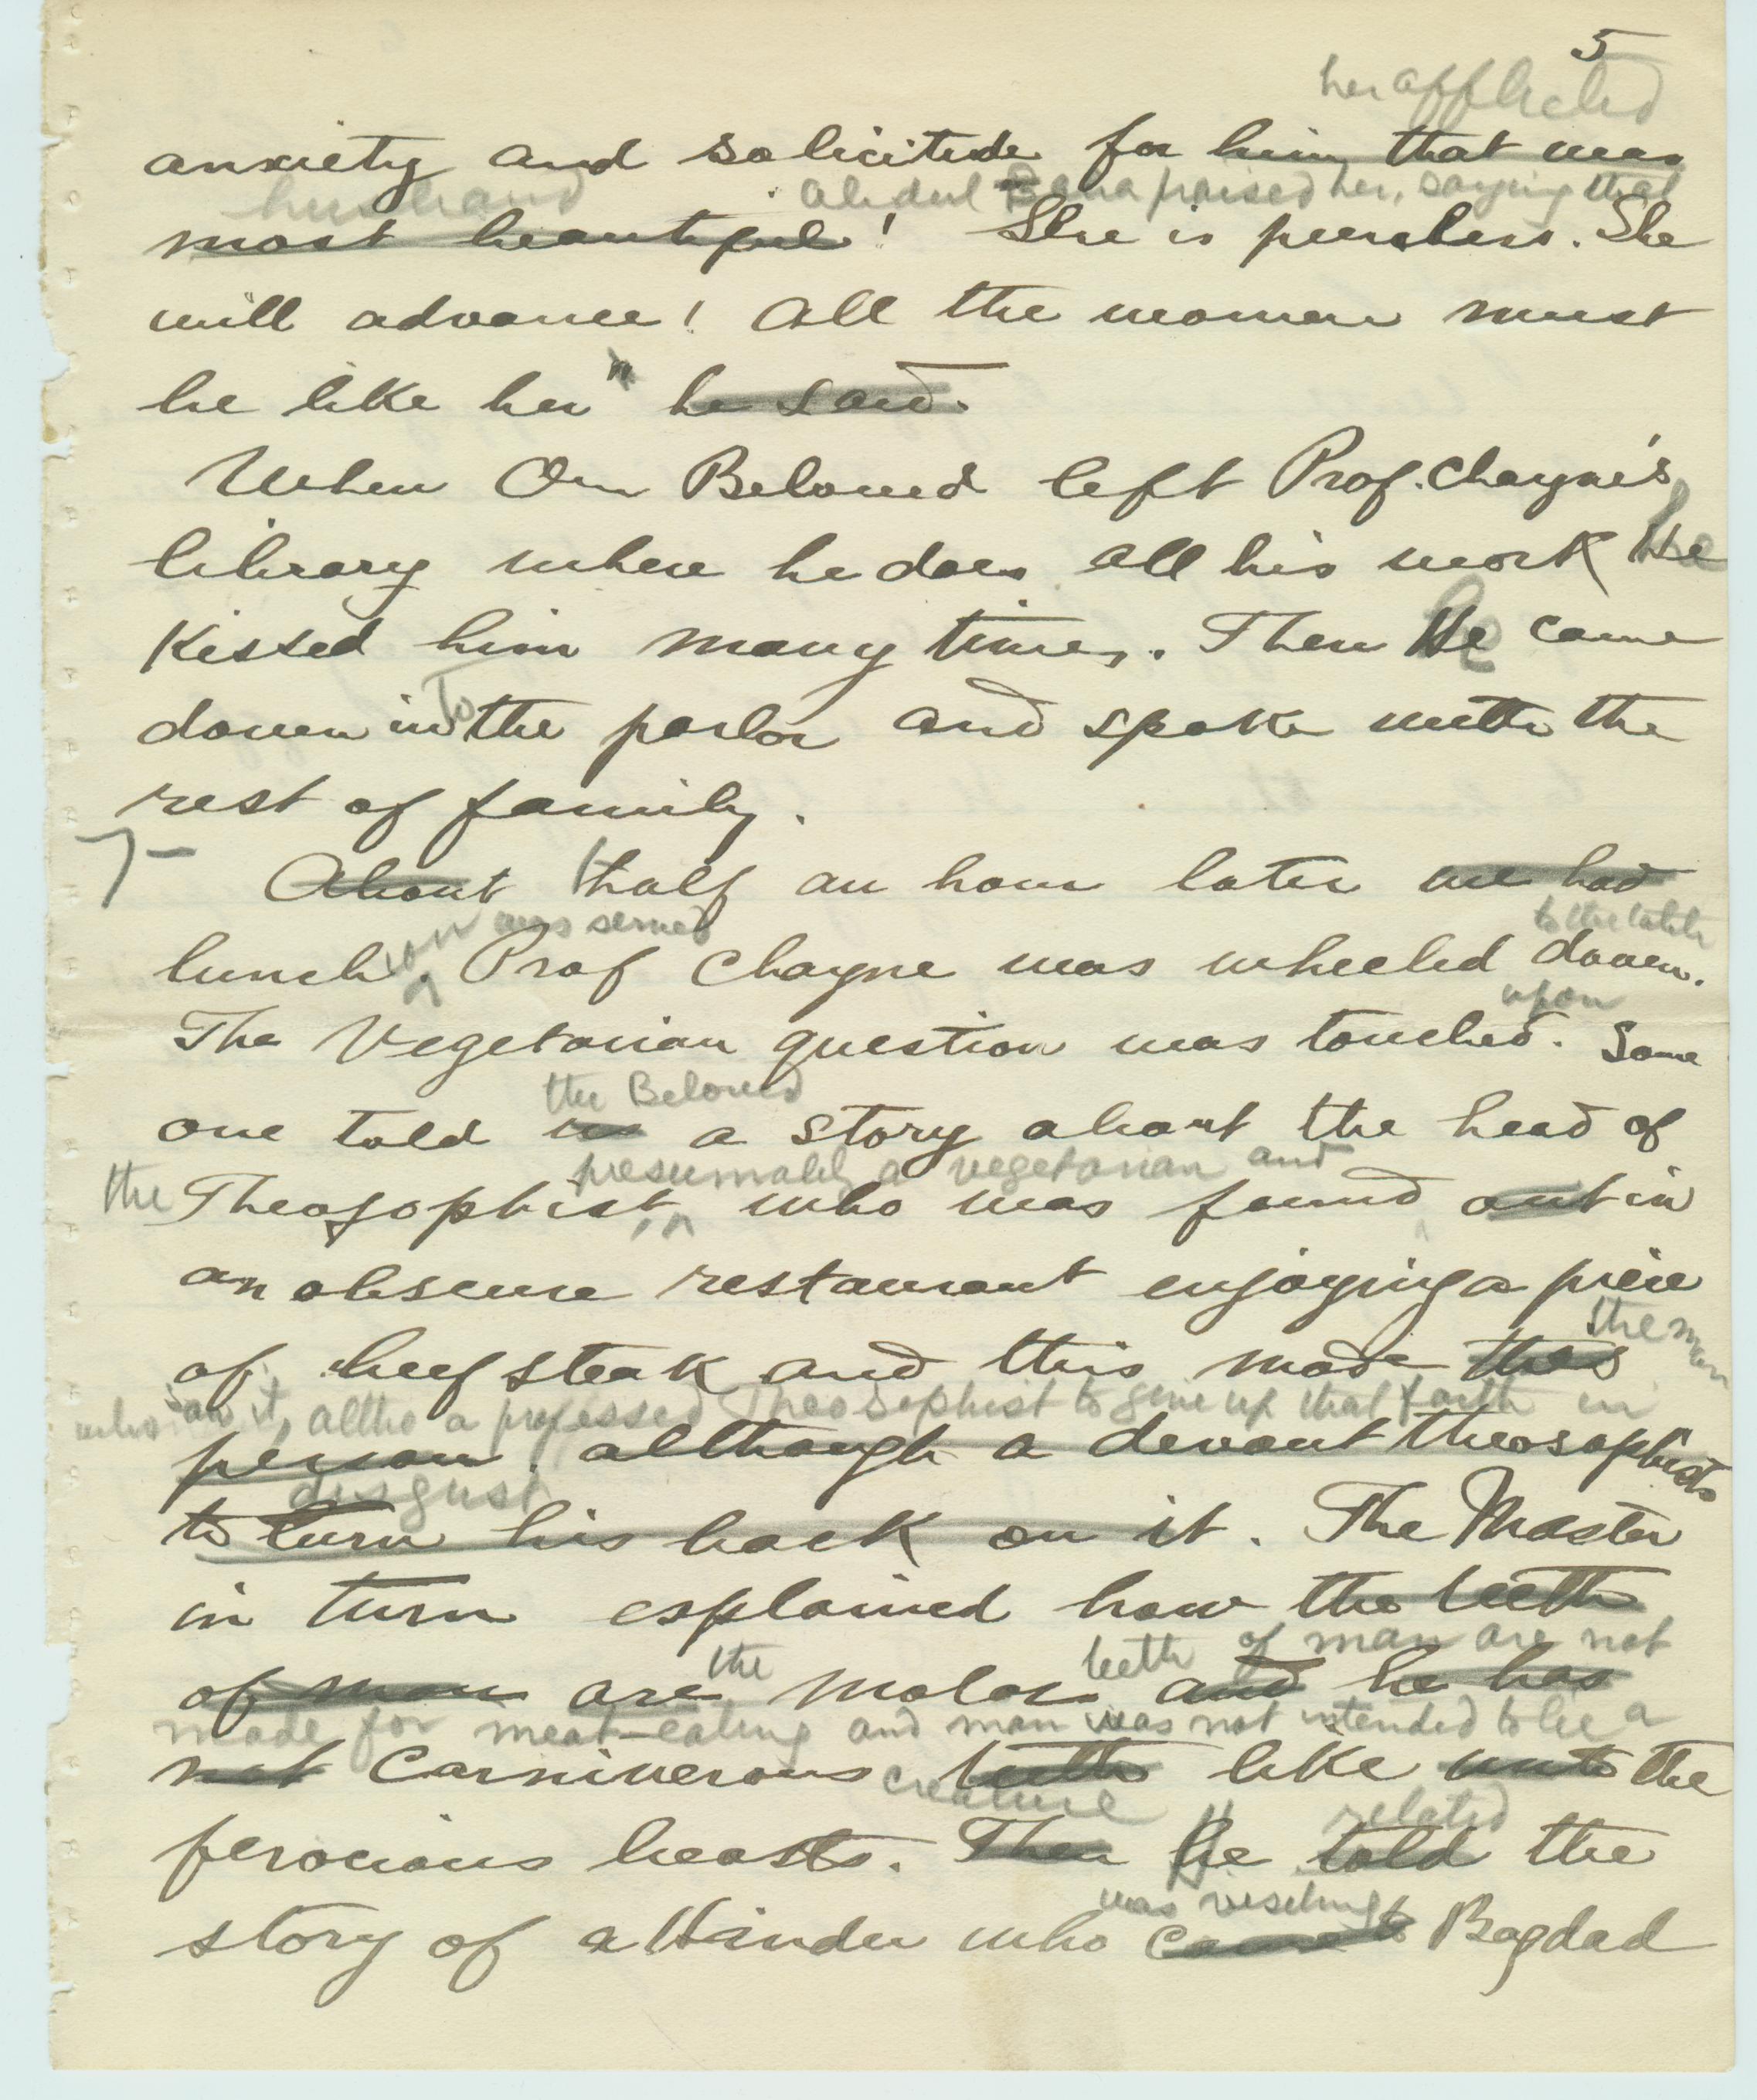 5
her afflicted
anxiety and solicitude for him, that was
husband Abdul Baha praised her, saying that
most beautiful! She is peerless. She
will advance! All the women must
be like her" he said.
When Our Beloved left Prof. Chayne's
library where he does all his work He
kissed him many times. Then He came
to
down in the parlor and spoke with the
rest of family.
About half an hour later we had
eon was served to the table
lunch. Prof Chayne was wheeled down.
upon
The Vegetarian question was touched. Some
the Beloved
one told us a story about the head of
presumably a vegetarian and
the Theosophist, who was found out in
an obscure restaurant enjoying a piece
the man
of beefsteak and this made this
who saw it, altho a professed Theosophist to give up that faith in
person, although a devout theosophist
disgust
to turn his back on it. The Master
in turn explained how the teeth
the teeth of man are not
of man are molars and he has
made for meat-eating and man was not intended to be a
not Carniverous teeth like unto the
creature related
ferocious beasts. Then He told the
was visiting
story of a Hindu who came to Bagdad